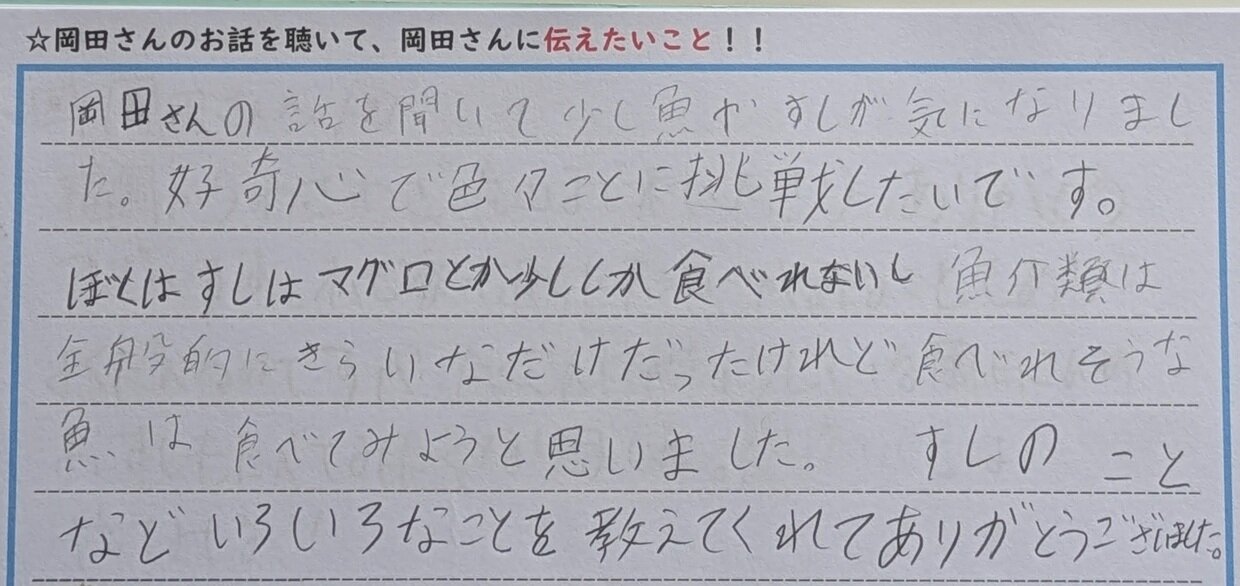 ☆岡田さんのお話を聴いて、岡田さんに伝えたいこと！！
岡田さんの話を聞いて少し魚やすしが気になりまし
た。好奇心で色々ことに挑戦したいです。
ぼくはすしはマグロとか少ししか食べれないし魚介類は
全般的にきらいなだけだったけれど食べれそうな
魚は食べてみようと思いました。 すしのこと
などいろいろなことを教えてくれてありがとうございました。